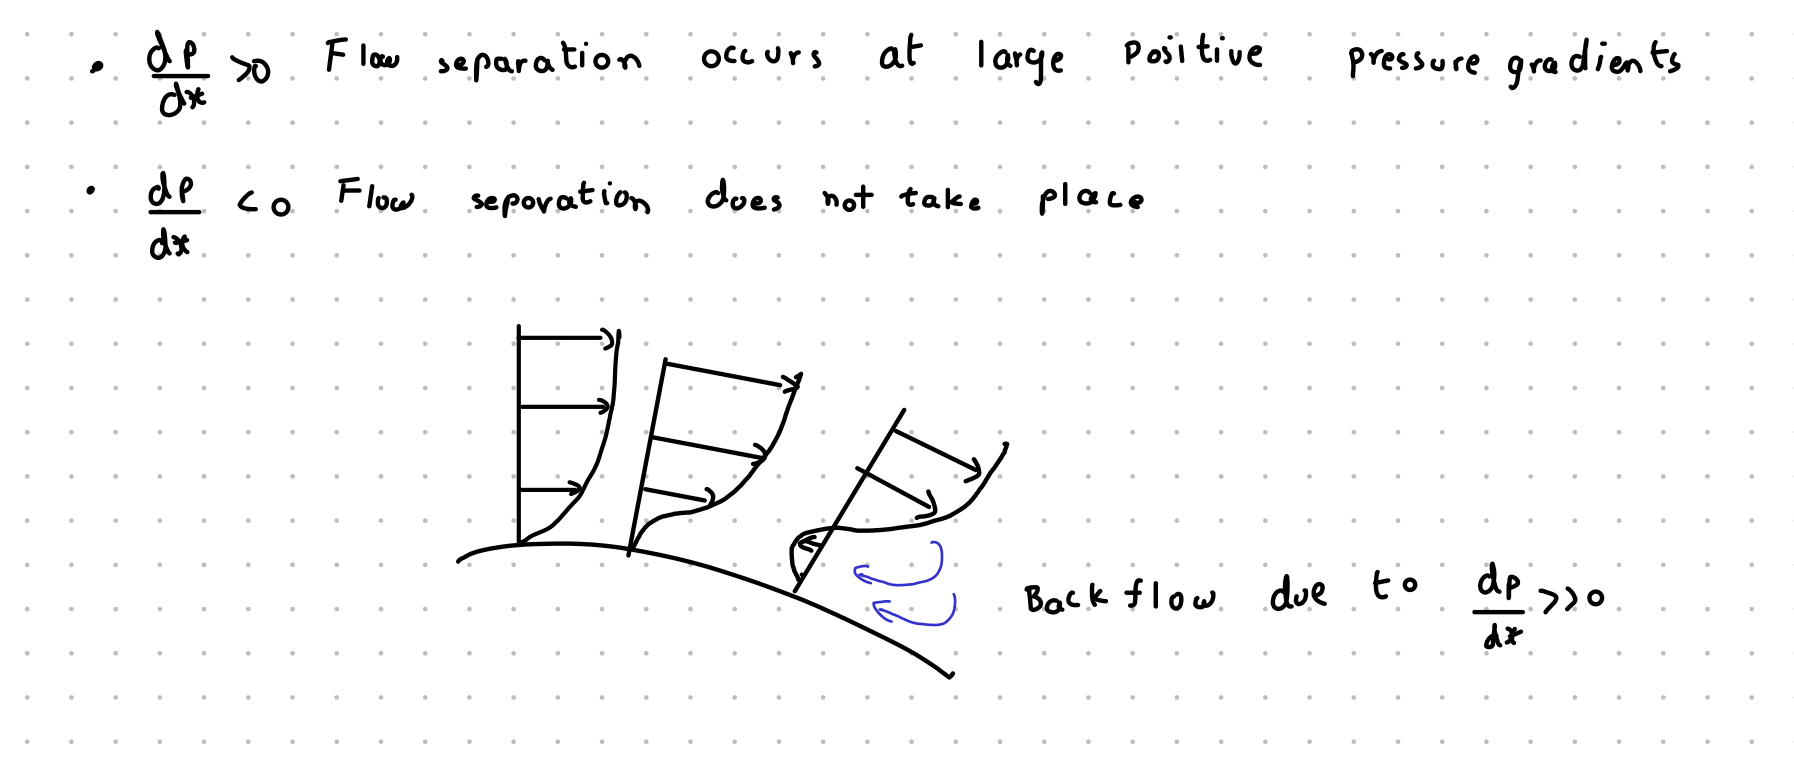 • dp/dx >0 Flow separation occurs at large Positive pressure gradients
• dp/dx <0 Flow separation does not take place
Back flow due to dp/dx >>0